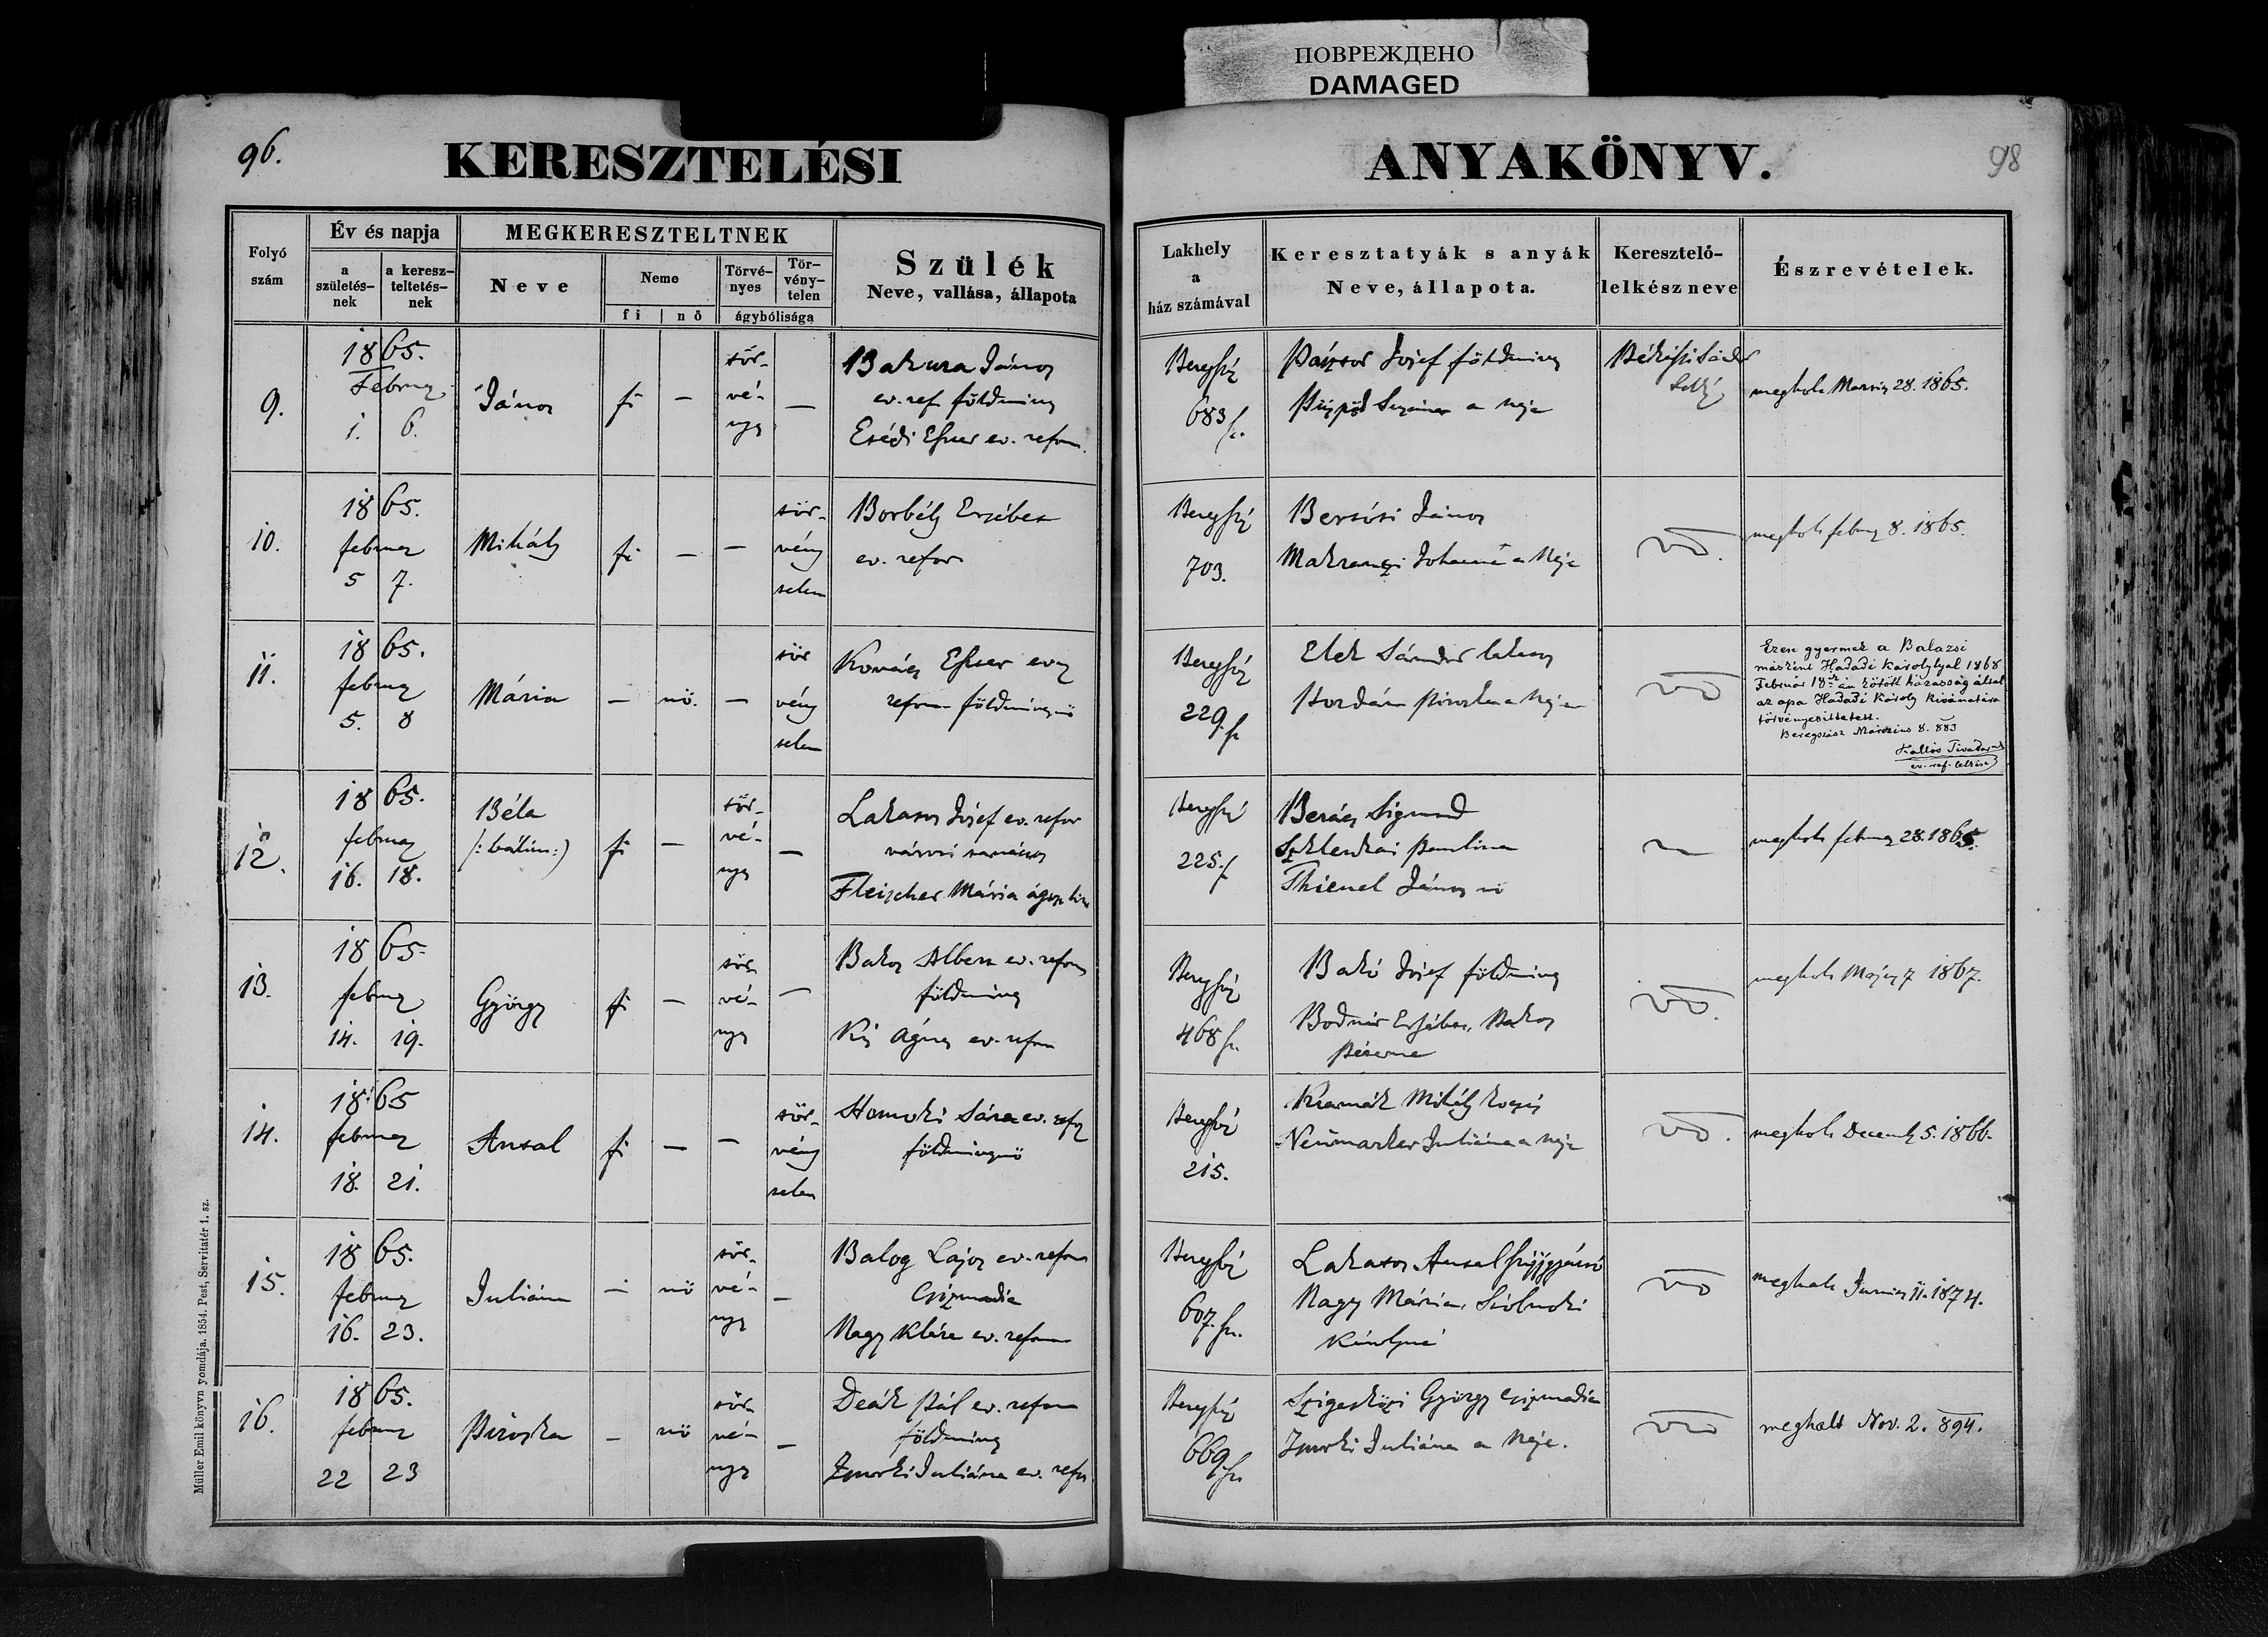 ПОВРЕЖДЕНО
DAMAGED
96.
KERESZTELÉSI
ANYAKÖNYV.
98
Folyó szám
Év és napja
a születés-nek
a keresz-teltetés-nek
MEGKERESZTELTNEK
Neve
Neme
fi | nő
Törvé-nyes
Tör-vény-telen
ágybólisága
Szülék
Neve, vallása, állapota
Lakhely
a
ház számával
Keresztatyák s anyák
Neve, állapota.
Keresztelő-
lelkész neve
Észrevételek.
9.
1865.
Februar
1. 6.
János
fi —
tör-
vé-
nys
—
Bakura János
ev. ref. földmives
Eszter ev. reform.
683
József földmives
a neje
meghalt Martius 28. 1865.
10.
1865.
februar
5 7.
Mihály
fi — —
tör-
vény
telen
Borbély Erzsébet
ev. refor
703.
János
a Neje
vd.
meghalt februar 8. 1865.
11.
1865.
februar
5. 8
Mária
— nö. —
tör
vény
telen
Kovács Eszter evg
reform földmivesnö
229.
Elek Sándor lakatos
Jordán Piroska a Neje
vd
Ezen gyermek a Balazsi
másként Hadadi Károlylyal 1868
Február 18-án kötött házasság által
az apa Hadadi Károly kivánatára
törvényesíttetett.
Beregszász Március 8. 883
Kallós Tivadar
ev. ref. lelkész
12.
1865.
februar
16. 18.
Béla
/:bálim:)
fi —
tör-
vé-
nys
—
Lakatos József ev. refor
városi
Fleischer Mária
225.
Sigmund
Paulina
Thienel János nö
meghalt februar 28. 1865.
13.
1865.
februar
14. 19.
György
fi —
tör
vé-
nys
—
Bakos Albert ev. reform
földmives
Kis Ágnes ev. reform
468
Bakó József földmives
Bodnár Erzsébet, Bakos
Péterné
vd.
meghalt Majus 7 1867.
14.
1865
februar
18. 21.
Antal
fi — —
tör-
vény
telen
Homoki Sára ev. ref
földmivesnö
215.
Mihály kocsis
Neümarker Juliána a neje
vd.
meghalt Decemb 5. 1866.
15.
1865.
februar
16. 23.
Juliána
— nö
tör-
vé-
nys
—
Balog Lajos ev. reform
Csizmadia
Nagy Klára ev. reform
607.
Lakatos Antal szijjgyártó
Nagy Mária,
Károlyné
vd
meghalt Junius 11. 1874.
16.
1865.
februar
22 23
Piroska
— nö
tör-
vé-
nys
—
Deák Pál ev. reform
földmives
Juliána ev. refor
669.
György csizmadia
Juliána a Neje.
vd
meghalt Nov. 2. 894.
Müller Emil könyvnyomdája. 1854. Pest, Servitatér 1. sz.